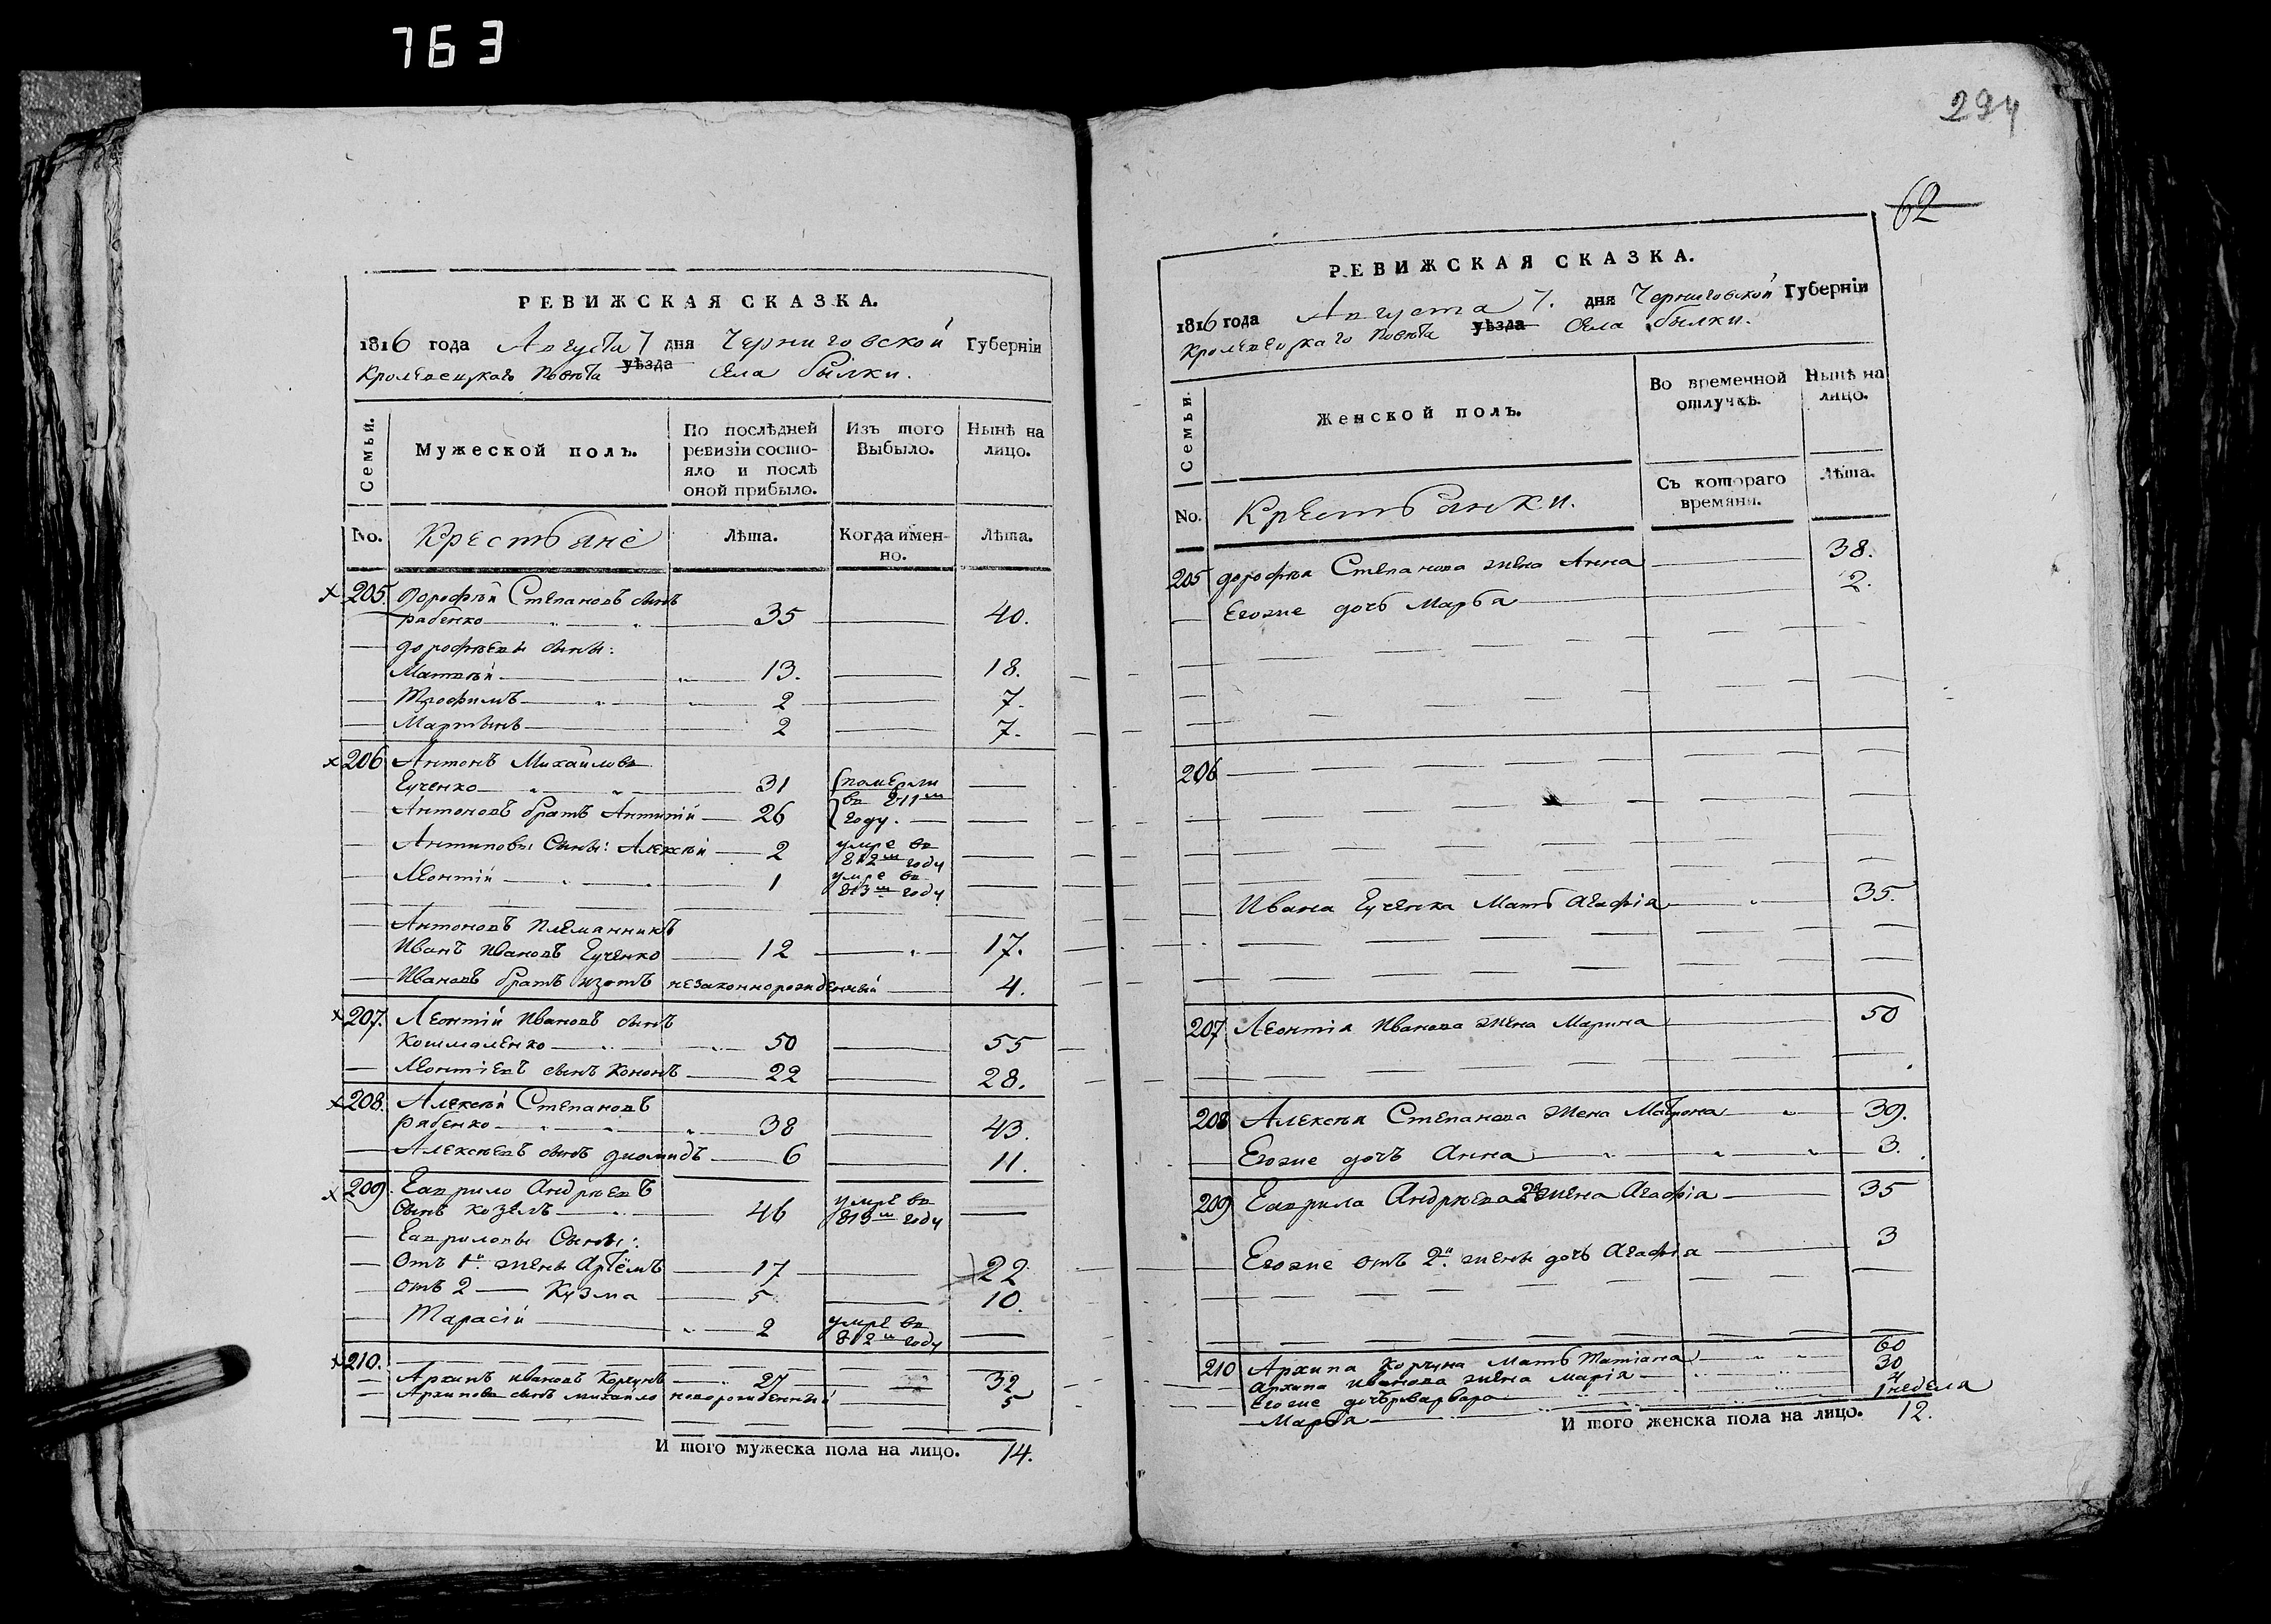 763
РЕВИЖСКАЯ СКАЗКА.
1816 года Августа 7 дня Черниговской Губерніи
Кролевецкаго Повѣта уѣзда села Былки.
Семьи.
Мужеской полъ.
По послѣдней ревизіи состояло и послѣ оной прибыло.
Изъ того Выбыло.
Нынѣ на лицо.
No. Крестьяне Лѣта. Когда имен-но. Лѣта.
205. Дорофѣй Степановъ сынъ
Рабенко 35 40.
Дорофѣевы сыны:
Матвѣй 13. 18.
Трофимъ 2 7.
Мартынъ 2 7.
206 Антонъ Михайловъ
Гученко 31 померли
Антоновъ братъ Антипій 26 въ 811м году.
Антиповы Сыны: Алексѣй 2 умре въ 812м году
Леонтій 1 умре въ 813м году
Антоновъ племянникъ
Иванъ Ивановъ Гученко 12 17.
Ивановъ братъ Изотъ незаконнорожденный 4.
207. Леонтій Ивановъ сынъ
Кошмаленко 50 55
Леонтіевъ сынъ Кононъ 22 28.
208. Алексѣй Степановъ
Рабенко 38 43.
Алексѣевъ сынъ Диомидъ 6 11.
209 Гаврило Андрѣевъ
Сынъ Козелъ 46 умре въ 813м году
Гавриловы Сыны:
Отъ 1й жены Артёмъ 17 22
отъ 2 Кузма 5 10.
Тарасій 2 умре въ 812м году
210.
Архипъ Ивановъ Корзунъ 27 32
Архиповъ сынъ Михайло новорожденный 5
И того мужеска пола на лицо. 14.
294
62
РЕВИЖСКАЯ СКАЗКА.
1816 года Августа 7. дня Черниговской Губерніи
Кролевецкаго Повѣта уѣзда Села Былки.
Семьи.
Женской полъ.
Во временной отлучкѣ.
Нынѣ на лицо.
No. Крестьянки. Съ котораго времяни. Лѣта.
205 Дорофѣя Степанова жена Анна 38.
Егоже дочь Марѳа 2.
206
Ивана Гученка Мать Агафія 35.
207 Леонтія Иванова жена Марина 50
208 Алексѣя Степанова жена Матрона 39.
Егоже дочь Анна 3.
209 Гаврила Андрѣева 2я жена Агафія 35
Егоже отъ 2й жены дочь Агафія 3
210 Архипа Корзуна Мать Татіана 60
Архипа Иванова жена Марія 30
Егоже дочь Варвара
Марѳа 1 неделя
И того женска пола на лицо. 12.